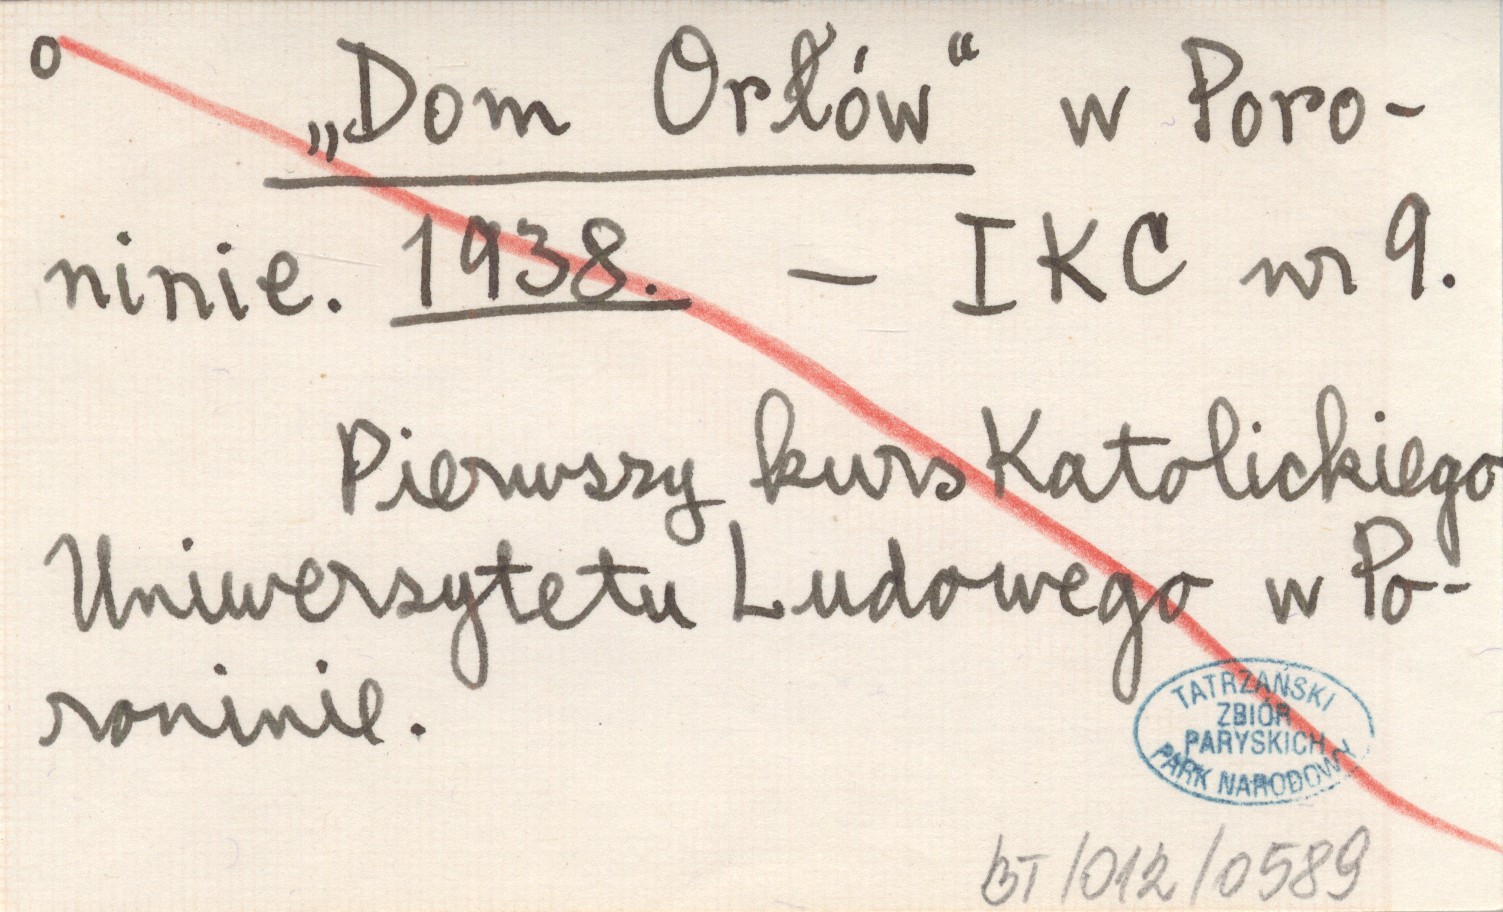 o „Dom Orłów“ w Poro-
ninie. 1938. — IKC nr 9.
Pierwszy kurs Katolickiego
Uniwersytetu Ludowego w Po-
roninie.
TATRZAŃSKI
ZBIÓR
PARYSKICH
PARK NARODOWY
BT/012/0589